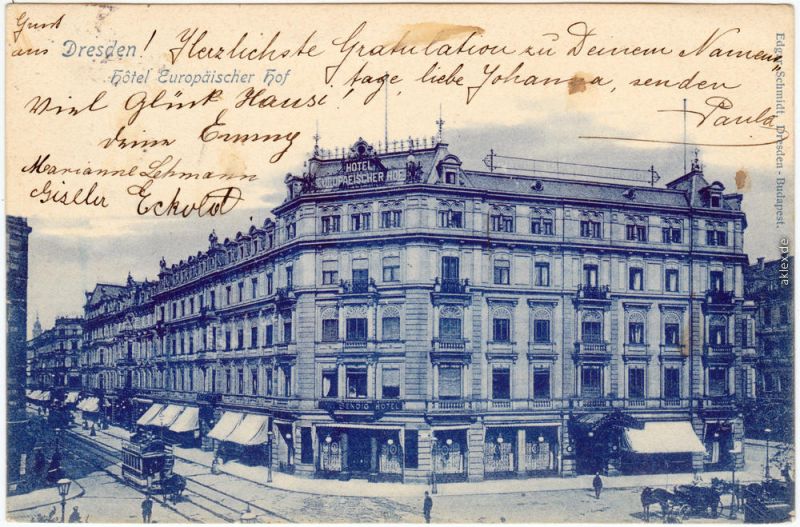 Gruss
aus Dresden!
Hôtel Europäischer Hof
Herzlichste Gratulation zu Deinem Namens-
tage, liebe Johanna, senden
Paula
Viel Glück Hansi!
deine Emmy
Marianne Lehmann
Gisller Eckoldt
HOTEL
EUROPAEISCHER HOF
SENDIG HOTEL
Edgar Schmidt, Dresden - Budapest.
akpool.de